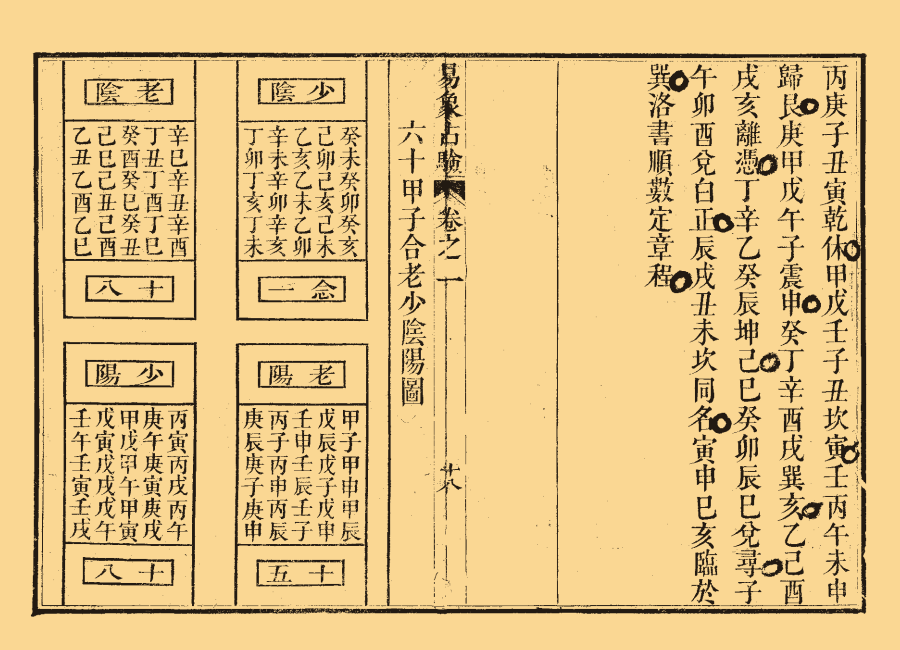 丙庚子丑寅乾休甲戊壬子丑坎寅壬丙午未申
歸艮庚甲戊午子震申癸丁辛酉戌巽亥乙己酉
戌亥離憑丁辛乙癸辰坤己巳癸卯辰巳兌尋子
午卯酉兌白正辰戌丑未坎同名寅申巳亥臨於
巽洛書順數定章程
易象占驗
卷之二
廿八
六十甲子合老少陰陽圖
少陰
癸未癸卯癸亥
己卯己亥己未
乙亥乙未乙卯
辛未辛卯辛亥
丁卯丁亥丁未
念一
老陽
甲子甲申甲辰
戊辰戊子戊申
壬申壬辰壬子
丙子丙申丙辰
庚辰庚子庚申
十五
老陰
辛巳辛丑辛酉
丁丑丁酉丁巳
癸酉癸巳癸丑
己巳己丑己酉
乙丑乙酉乙巳
十八
少陽
丙寅丙戌丙午
庚午庚寅庚戌
甲戌甲午甲寅
戊寅戊戌戊午
壬午壬寅壬戌
十八